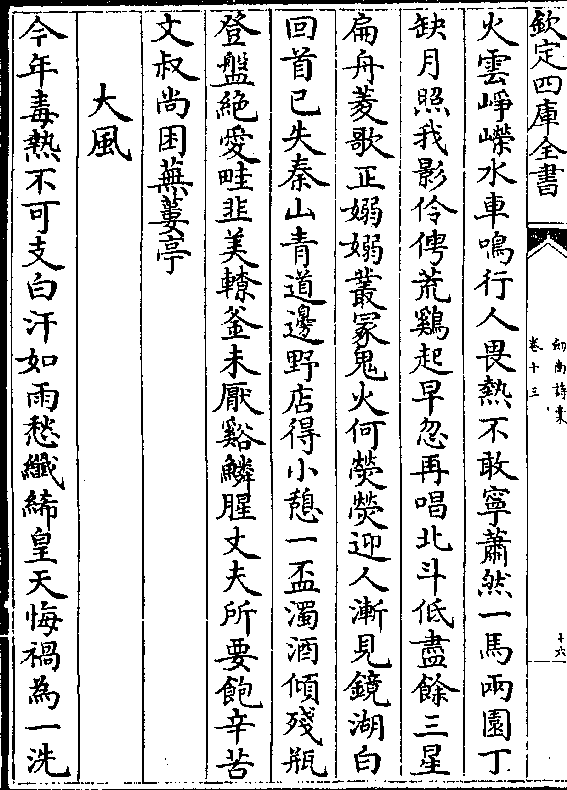 欽定四庫全書
劍南詩藁
卷十三
十六
火雲崢嶸水車鳴行人畏熱不敢寧蕭然一馬兩園丁
缺月照我影伶俜荒鷄起早忽再唱北斗低盡餘三星
扁舟菱歌正嫋嫋叢冢鬼火何熒熒迎人漸見鏡湖白
回首已失秦山青道邊野店得小憩一盃濁酒傾殘瓶
登盤絶愛畦韭美轑釜未厭谿鱗腥丈夫所要飽辛苦
文叔尚困蕪蔞亭
大風
今年毒熱不可支白汗如雨愁纖絺皇天悔禍為一洗